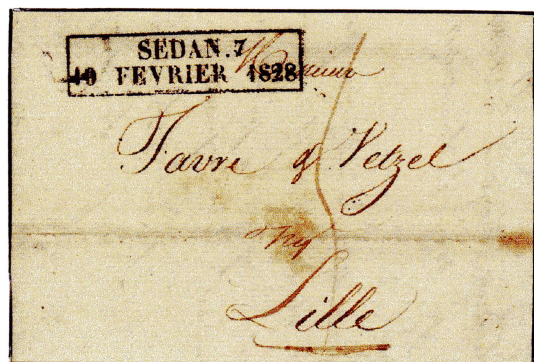 SEDAN. 7
10 FEVRIER 1828
Monsieur
Favre & Vetzel
Lille